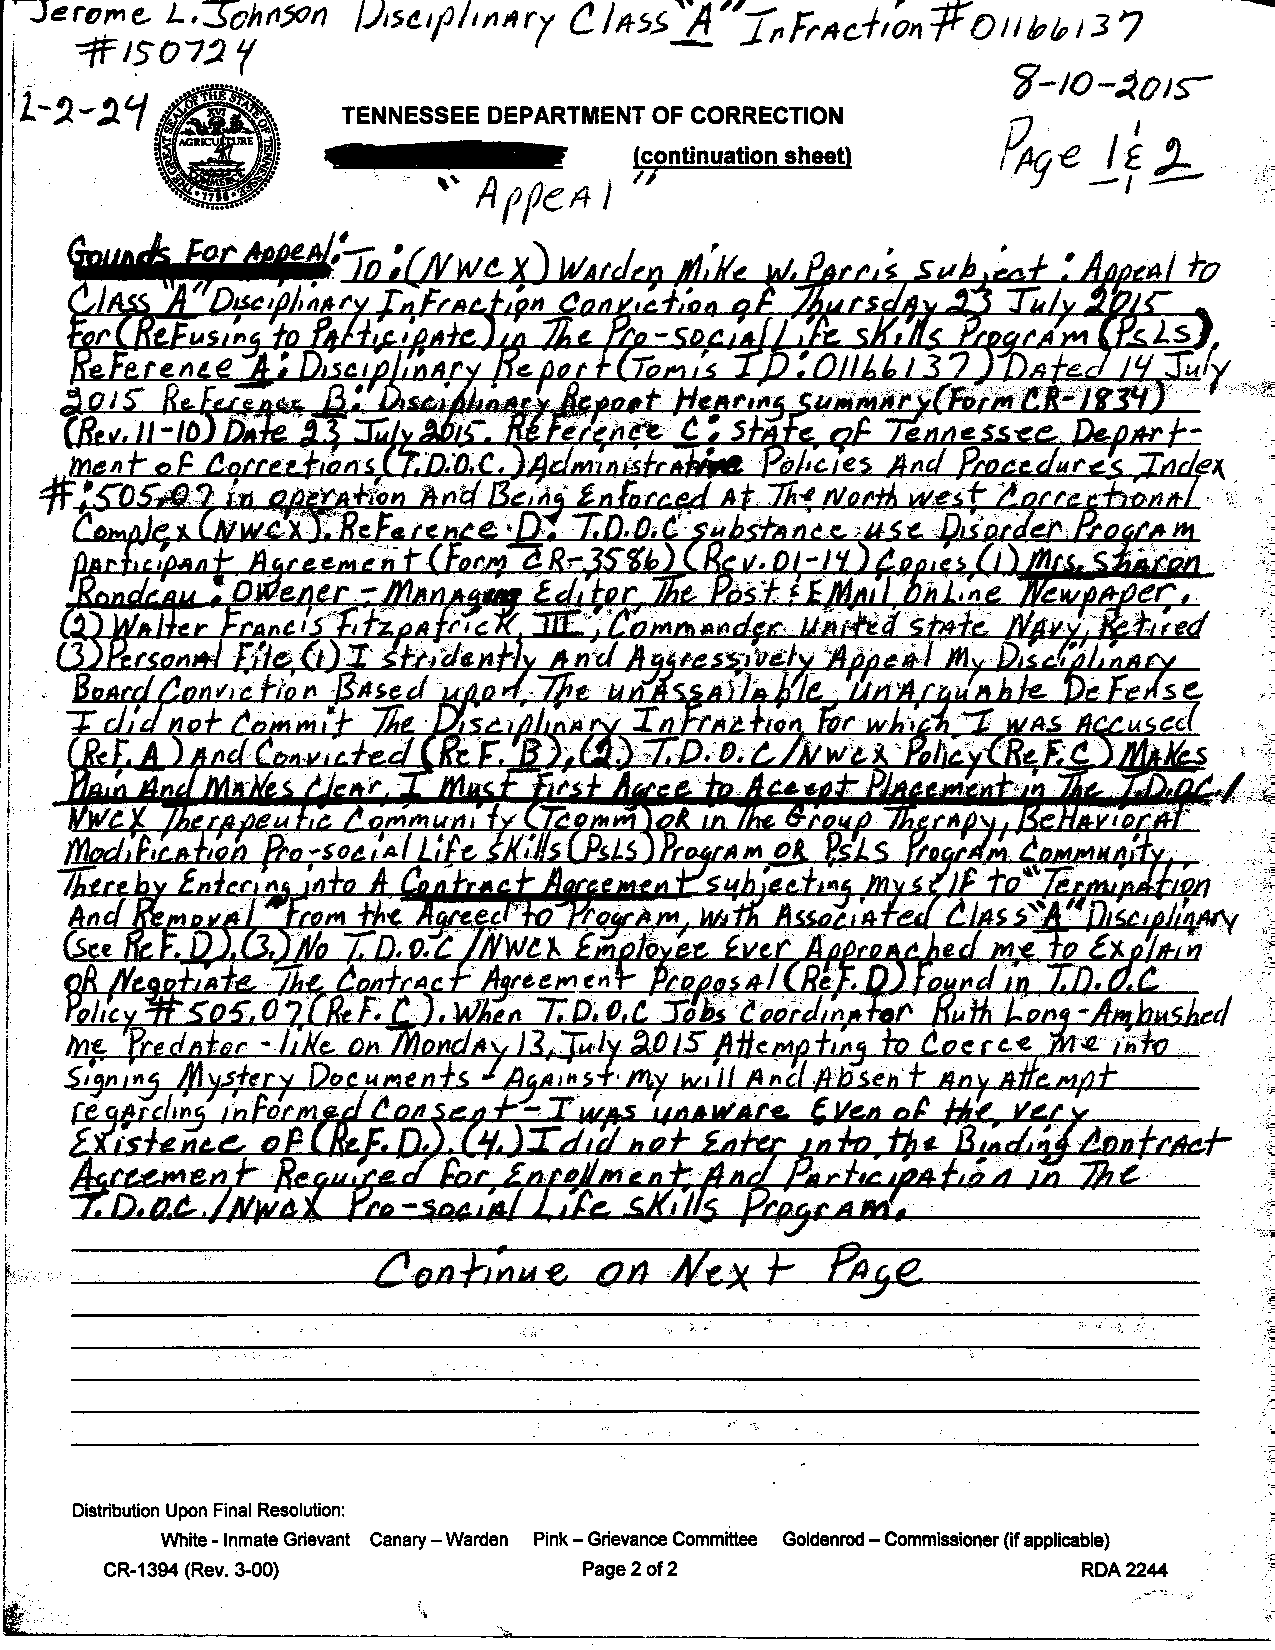 Jerome L. Johnson Disciplinary Class "A" Infraction # 01166137
#150724
8-10-2015
L-2-24
AGRICULTURE
COMMERCE
TENNESSEE DEPARTMENT OF CORRECTION
(continuation sheet)
Page 1 & 2
"Appeal"
Gounds For Appeal: To: (NWCX) Warden Mike W. Parris Subject: Appeal to
Class "A" Disciplinary Infraction Conviction of Thursday 23 July 2015
For (Refusing to Participate) in The Pro-social Life skills Program (PsLS),
Reference A: Disciplinary Report (Tomis ID: 01166137) Dated 14 July
2015 Reference B: Disciplinary Report Hearing Summary (Form CR-1834)
(Rev. 11-10) Date 23 July 2015. Reference C: State of Tennessee Depart-
ment of Corrections (T.D.O.C.) Administrative Policies And Procedures Index
#: 505.07 in operation And Being Enforced At The North west Correctional
Complex (NWCX). Reference D: T.D.O.C substance use Disorder Program
Participant Agreement (Form CR-3586) (Rev. 01-14) Copies (1) Mrs. Sharon
Rondeau: Owener - Managing Editor, The Post & EMail OnLine Newpaper.
(2) Walter Francis Fitzpatrick, III, Commander United State Navy, Retired
(3) Personal File (1) I stridently And Aggressively Appeal My Disciplinary
Board Conviction Based upon The unAssailable, unArguable Defense
I did not Commit The Disciplinary Infraction For which I was Accused
(Ref. A) And Convicted (Ref. B), (2.) T.D.O.C/NWCX Policy (Ref. C) Makes
Plain And Makes Clear, I Must First Agree to Accept Placement in The T.D.O.C/
NWCX Therapeutic Community (Tcomm) OR in The Group Therapy, BeHavioral
Modification Pro-social Life Skills (PsLS) Program OR PsLS Program Community,
Thereby Entering into A Contract Agreement subjecting myself to "Termination
And Removal" from the Agreed to Program, with Associated Class "A" Disciplinary
(see Ref. D). (3.) No T.D.O.C/NWCX Employee Ever Approached me to Explain
OR Negotiate The Contract Agreement Proposal (Ref. D) Found in T.D.O.C
Policy # 505.07 (Ref. C). When T.D.O.C Jobs Coordinator Ruth Long - Ambushed
me Predator-like on Monday 13, July 2015 Attempting to Coerce Me into
Signing Mystery Documents - Against my will And Absent Any Attempt
regarding informed Consent - I was unaware Even of the very
Existence of (Ref. D.). (4.) I did not Enter into the Binding Contract
Agreement Required For Enrollment And Participation in The
T.D.O.C./NWCX Pro-social Life Skills Program.
Continue on Next Page
Distribution Upon Final Resolution:
White - Inmate Grievant Canary – Warden Pink – Grievance Committee Goldenrod – Commissioner (if applicable)
CR-1394 (Rev. 3-00) Page 2 of 2 RDA 2244